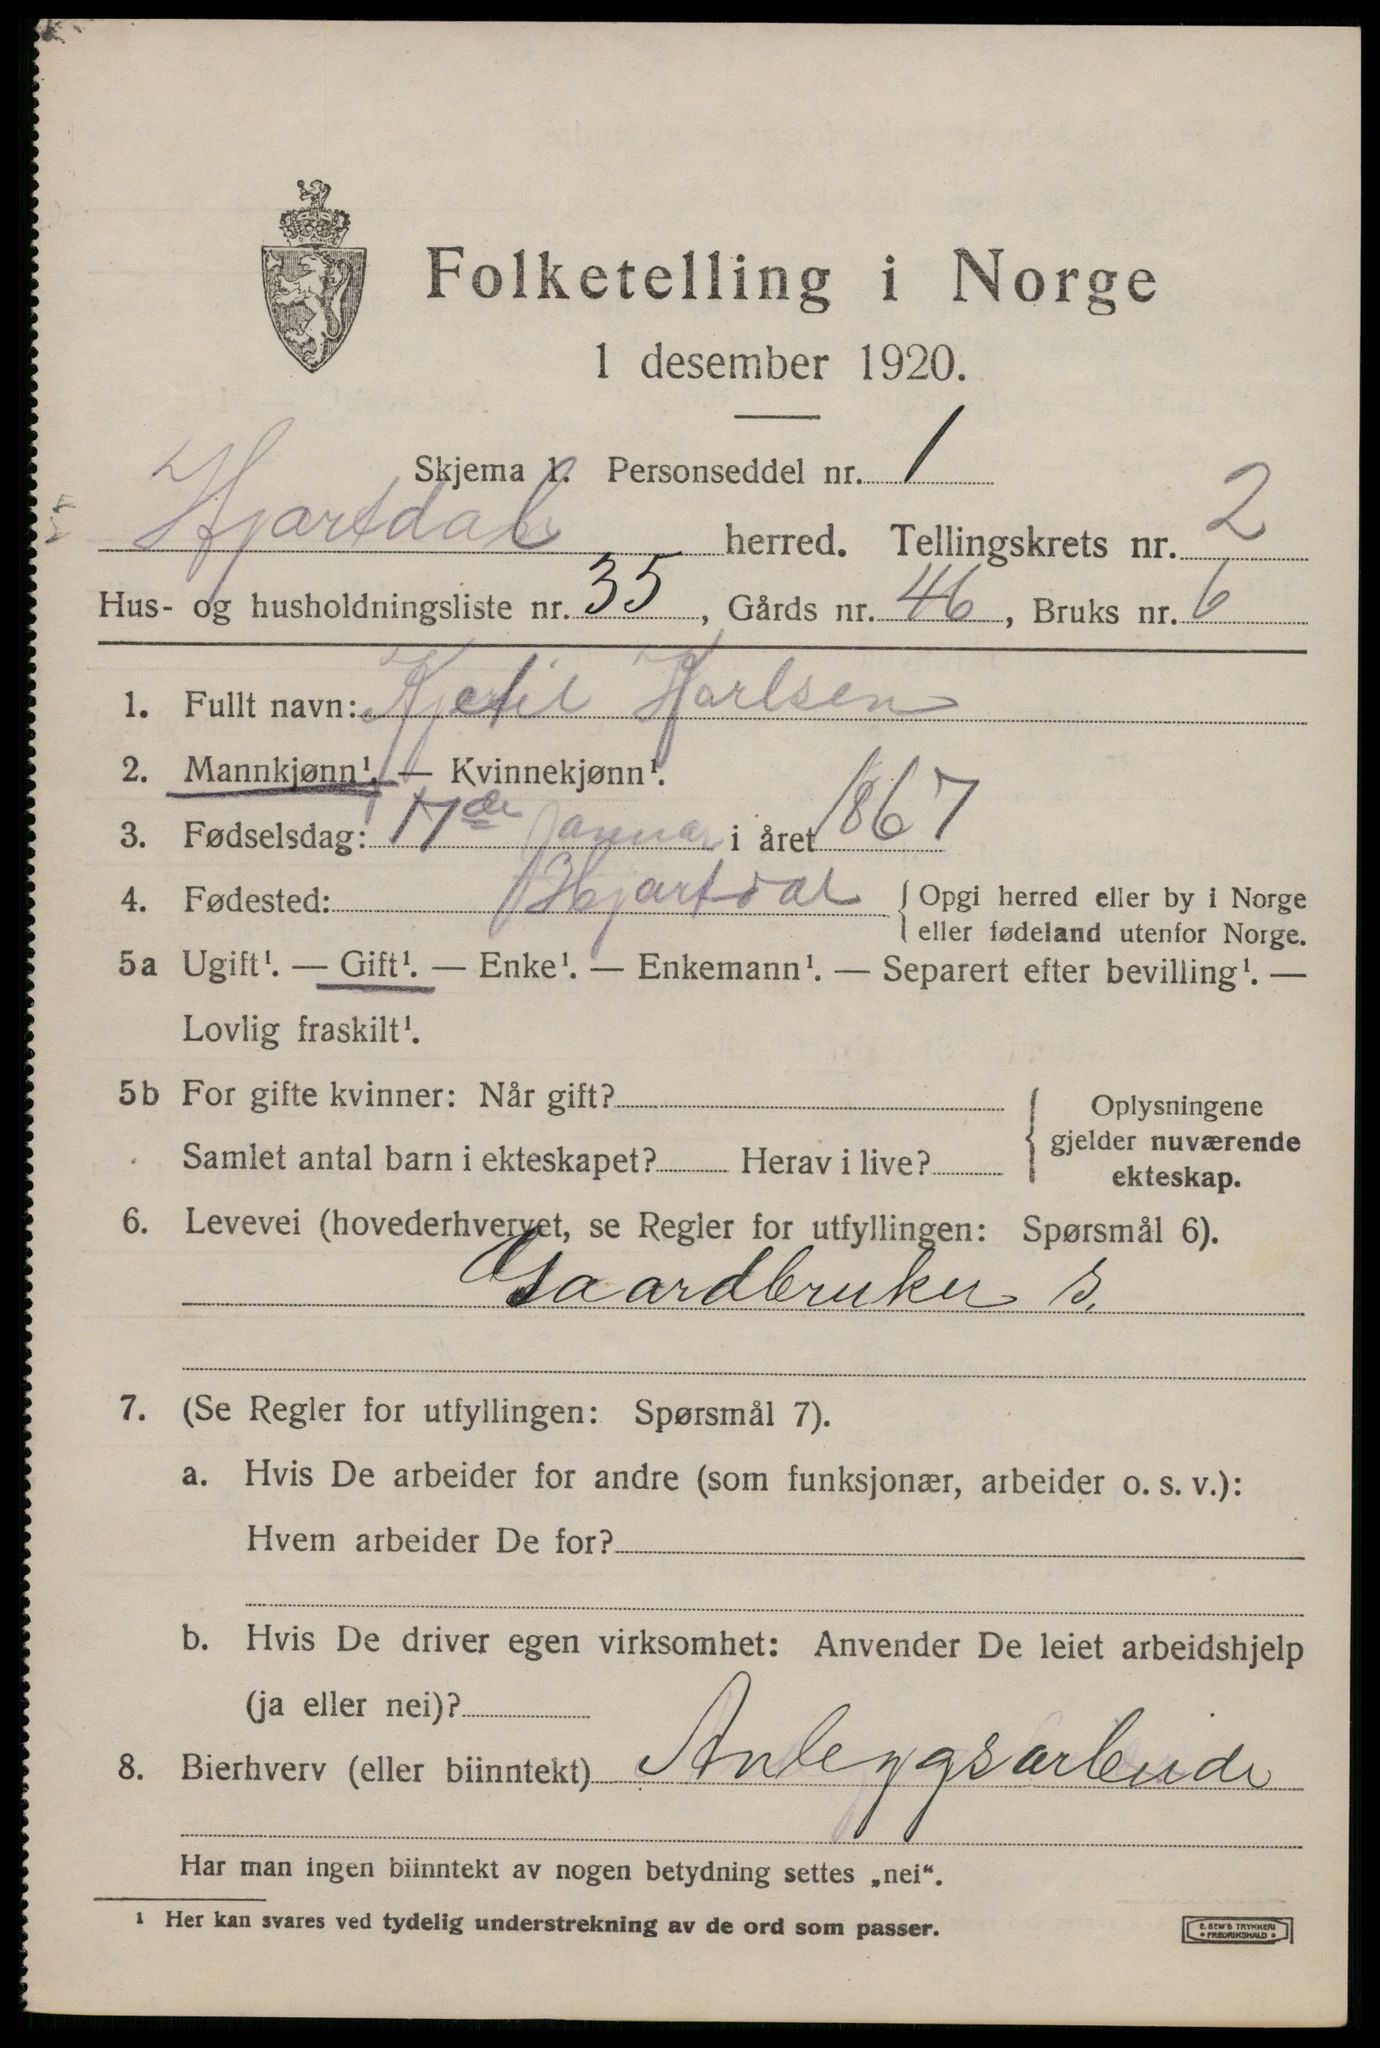 Folketelling i Norge
1 desember 1920.
Skjema 1. Personseddel nr. 1
Hjartdal herred. Tellingskrets nr. 2
Hus- og husholdningsliste nr. 35, Gårds nr. 46, Bruks nr. 6
1. Fullt navn: Kjetil Karlsen
2. Mannkjønn¹. — Kvinnekjønn¹.
3. Fødselsdag: 17de Januar i året 1867
4. Fødested: Hjartdal { Opgi herred eller by i Norge
eller fødeland utenfor Norge.
5a Ugift¹. — Gift¹. — Enke¹. — Enkemann¹. — Separert efter bevilling¹. —
Lovlig fraskilt¹.
5b For gifte kvinner: Når gift?
Samlet antal barn i ekteskapet? Herav i live?
{ Oplysningene
gjelder nuværende
ekteskap.
6. Levevei (hovederhvervet, se Regler for utfyllingen: Spørsmål 6).
Gaardbruker s.
7. (Se Regler for utfyllingen: Spørsmål 7).
a. Hvis De arbeider for andre (som funksjonær, arbeider o. s. v.):
Hvem arbeider De for?
b. Hvis De driver egen virksomhet: Anvender De leiet arbeidshjelp
(ja eller nei)?
8. Bierhverv (eller biinntekt) Anleggsarbeide
Har man ingen biinntekt av nogen betydning settes „nei“.
¹ Her kan svares ved tydelig understrekning av de ord som passer.
E. SEM'S TRYKKERI
* FREDRIKSHALD *